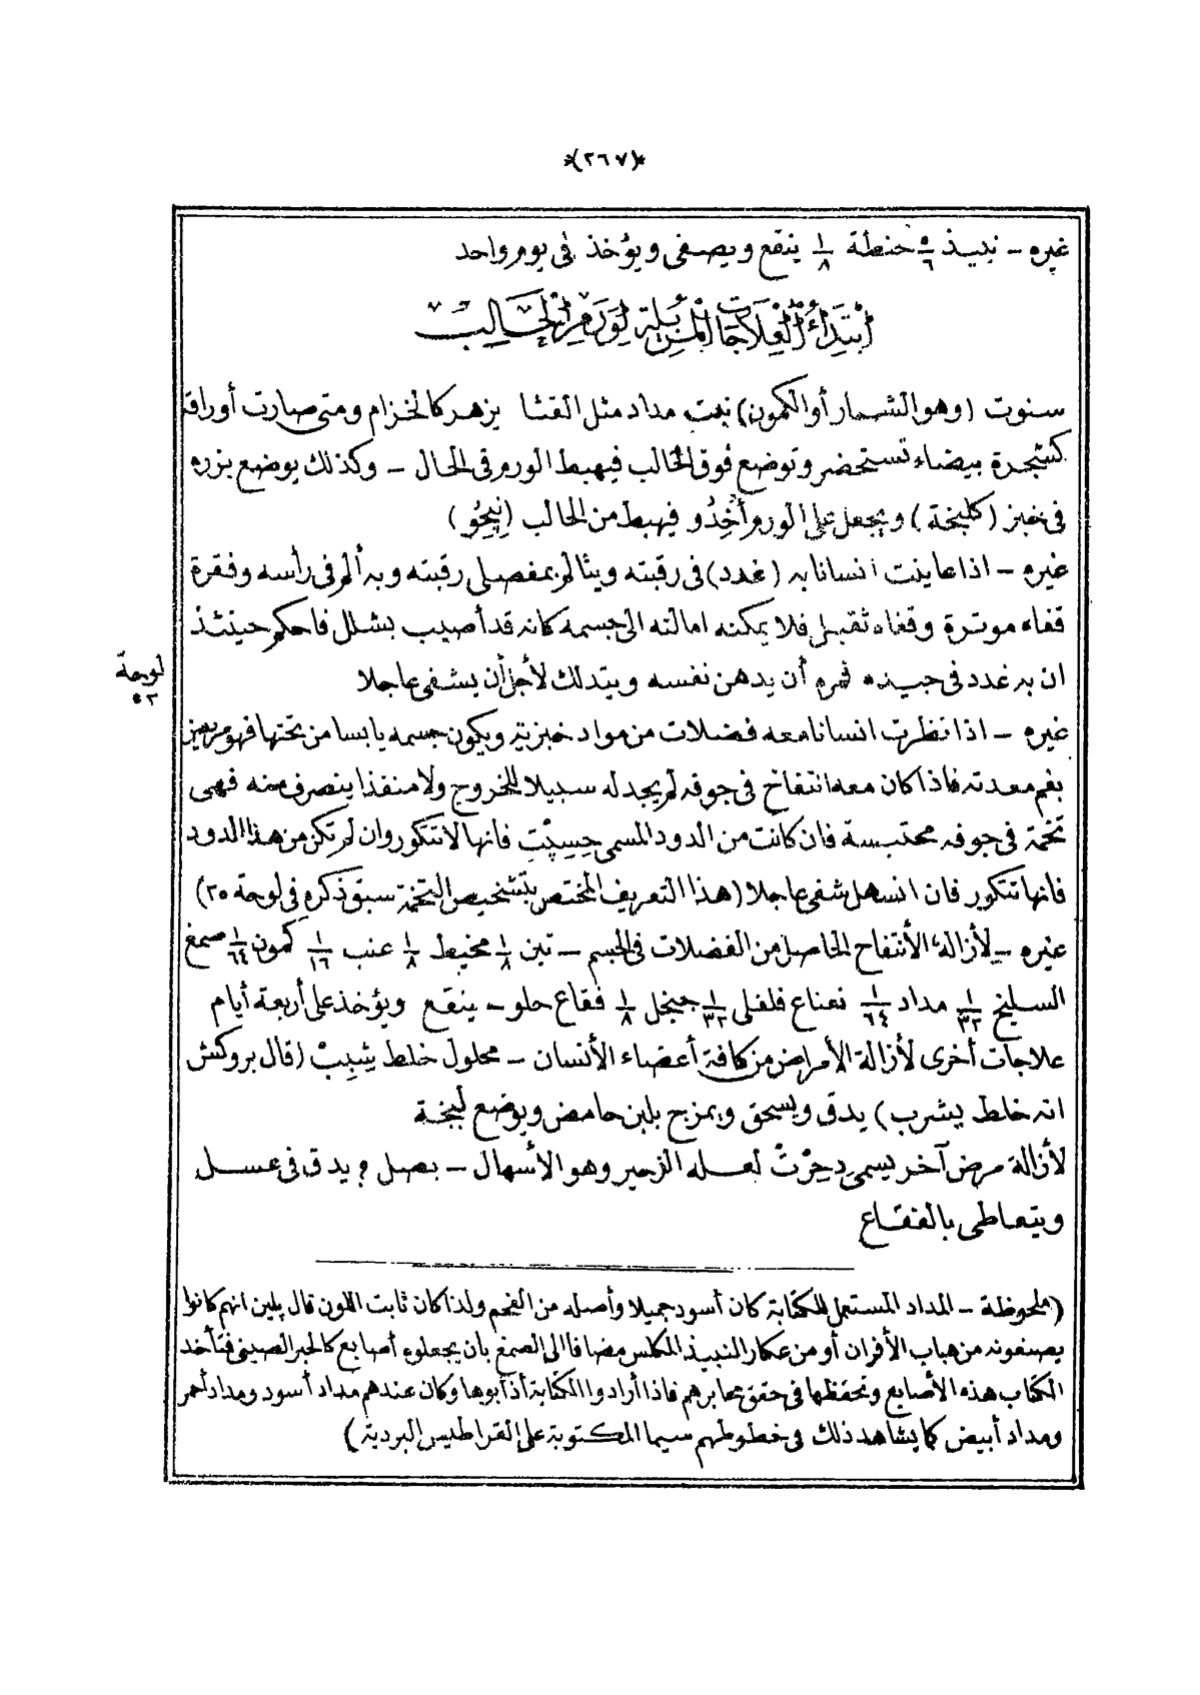 *(٢٦٧)*
غيره - نبيذ ٥/٦ حنطة ١/٨ ينقع ويصفى ويؤخذ فى يوم واحد
ابتداء العلاجات المزيلة لورم الحالب
سنوت (وهو الشمار أو الكمون) نبت مداد مثل القثا يزهر كالخزام ومتى صارت أوراقه
كشجرة بيضاء تستحضر وتوضع فوق الحالب فيهبط الورم فى الحال - وكذلك يوضع بزره
فى خبز (كلبخة) ويجعل على الورم أخدو فيهبط من الحالب (نيجو)
غيره - اذا عاينت انسانا به (غدد) فى رقبته ويتألم بمفصلى رقبته وبه ألم فى رأسه وفقرة
قفاه موترة وقفاه ثقيل فلا يمكنه امالته الى جسمه كانه قد أصيب بشلل فاحكم حينئذ
ان به غدد فى جيده فمره أن يدهن نفسه ويتدلك لأجل أن يشفى عاجلا
لوحة
٥٢
غيره - اذا نظرت انسانا معه فضلات من مواد خبزية ويكون جسمه يابسا من تحتها فهو مريض
بفم معدته فاذا كان معه انتفاخ فى جوفه لم يجد له سبيلا للخروج ولا منفذا ينصرف منه فهى
تخمة فى جوفه محتبسة فان كانت من الدود المسمى حسبت فانها لا تتكور وان لم تكن من هذا الدود
فانها تتكور فان انسهل شفى عاجلا (هذا التعريف المختص بتشخيص التخمة سبق ذكره فى لوحة ٢٥)
غيره - لأزالة الأنتفاخ الحاصل من الفضلات فى الجسم - تين ١/٨ مخيط ١/٨ عنب ١/١٦ كمون ١/٦٤ صمغ
السليخ ١/٣٢ مداد ١/٦٤ نعناع فلفلى ١/٣٢ جنجل ١/٨ فقاع حلو - ينقع ويؤخذ على أربعة أيام
علاجات أخرى لأزالة الأمراض من كافة أعضاء الأنسان - محلول خلط شببت (قال بروكش
انه خلط يشرب) يدق ويسحق ويمزج بلبن حامض ويوضع لبخة
لأزالة مرض آخر يسمى دحرت لعله الزحير وهو الأسهال - بصل ٩ يدق فى عسل
ويتعاطى بالفقاع
(ملحوظة - المداد المستعمل للكتابة كان أسود جميلا وأصله من الفحم ولذا كان ثابت اللون قال پلين انهم كانوا
يصنعونه من هباب الأفران أو من عكار النبيذ المكلس مضافا الى الصمغ بان يجعلوه أصابع كالحبر الصينى فتأخذ
الكتاب هذه الأصابع وتحفظها فى حقق محابرهم فاذا أرادوا الكتابة أذابوها وكان عندهم مداد أسود ومداد أحمر
ومداد أبيض كما يشاهد ذلك فى خطوطهم سيما المكتوبة على القراطيس البردية)